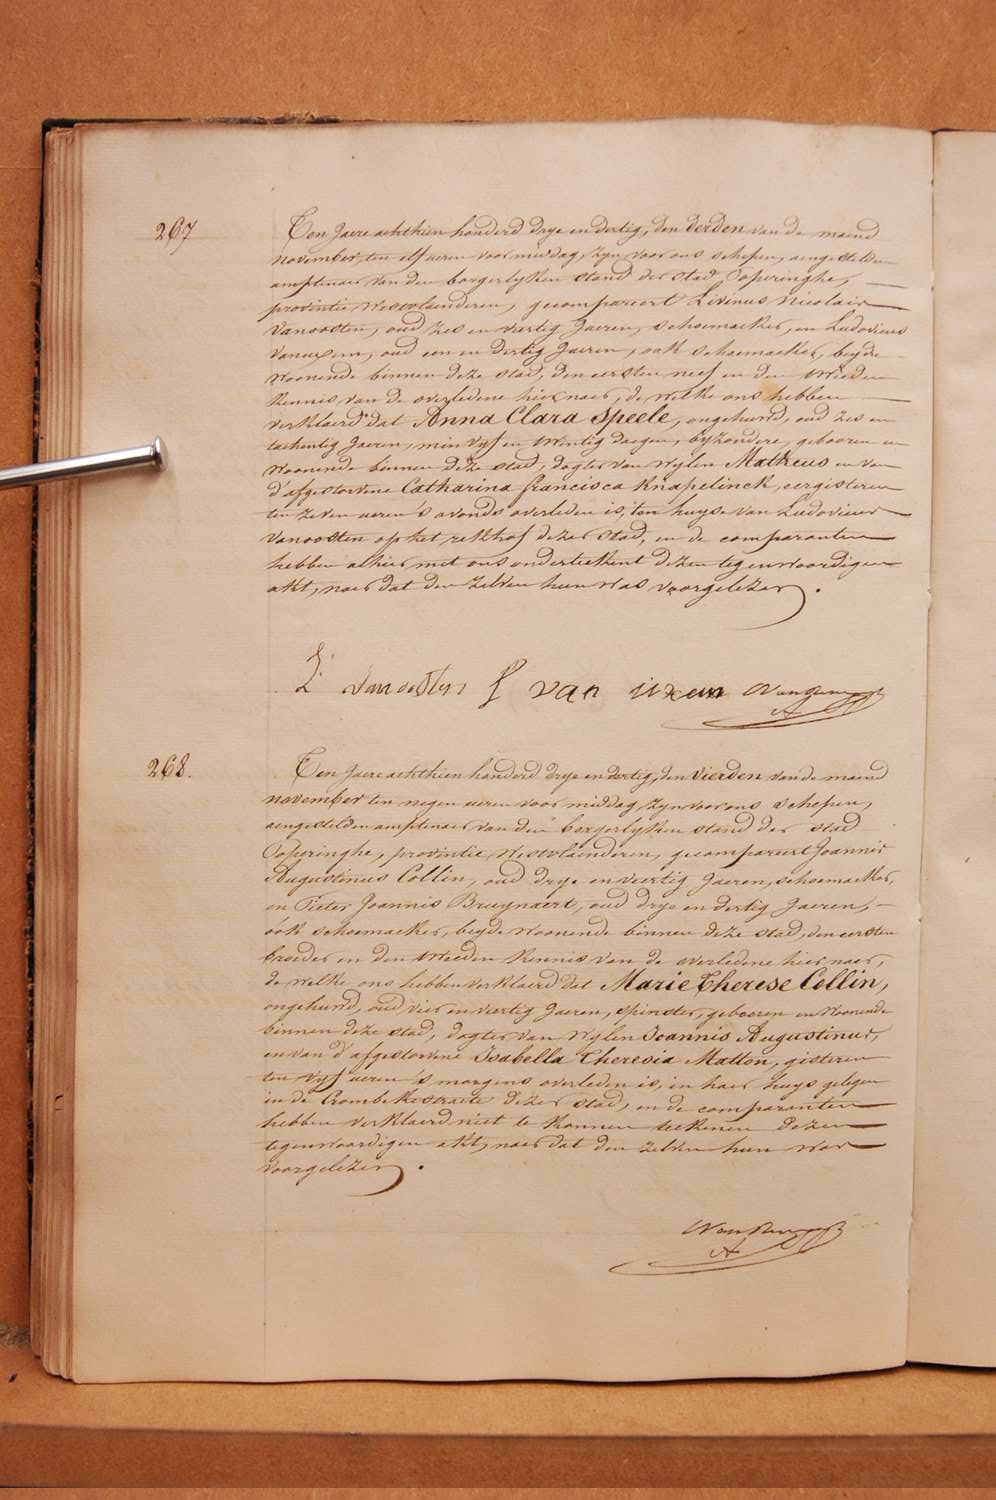 267
Ten Jaere achthien honderd drye en dertig, den derden van de maend
november, ten elf ueren voormiddag, zyn voor ons schepen, aengestelden
amptenaer van den borgerlyken stand der stad Poperinghe,
provintie Westvlaenderen, gecompareert Livinus Nicolais
Vanoosten, oud zes en veertig Jaeren, schoemaeker, en Ludovicus
Vanuxem, oud een en dertig Jaeren, ook schoemaeker, beyde
woonende binnen deze stad, den eersten neef en den tweeden
kennis van de overledene hier naer, de welke ons hebben
verklaerd dat Anna Clara Speele, ongehuwd, oud zes en
tachentig Jaeren, min vyf en twintig daegen, byzondere, gebooren en
woonende binnen deze stad, dogter van wylen Matheus en van
d'afgestorvene Catharina francisca Knapelinck, eergisteren
ten zeven ueren 's avonds overleden is, ten huyse van Ludovicus
Vanoosten op het zelkhof dezer stad, en de comparanten
hebben alhier met ons onderteekent dezen tegenwoordigen
akt, naer dat den zelven hun was voorgelezen.
L. Vanoosten L van uxem
268.
Ten Jaere achthien honderd drye en dertig, den vierden van de maend
november ten negen ueren voor middag, zyn voor ons schepen,
aengestelden amptenaer van den borgerlyken stand der stad
Poperinghe, provintie Westvlaenderen, gecompareert Joannis
Augustinus Collin, oud drye en veertig Jaeren, schoemaeker,
en Pieter Joannis Bruynaert, oud drye en dertig Jaeren,
ook schoemaeker, beyde woonende binnen deze stad, den eersten
broeder en den tweeden kennis van de overledene hier naer,
de welke ons hebben verklaerd dat Marie Therese Collin,
ongehuwd, oud vier en veertig Jaeren, spinster, gebooren en woonende
binnen deze stad, dogter van wylen Joannis Augustinus,
en van d'afgestorvene Isabella Theresia Matton, gisteren
ten vyf ueren 's morgens overleden is, in haer huys gelegen
in de Crombekestraete dezer stad, en de comparanten
hebben verklaerd niet te konnen teekenen dezen
tegenwoordigen akt, naer dat den zelven hun was
voorgelezen.